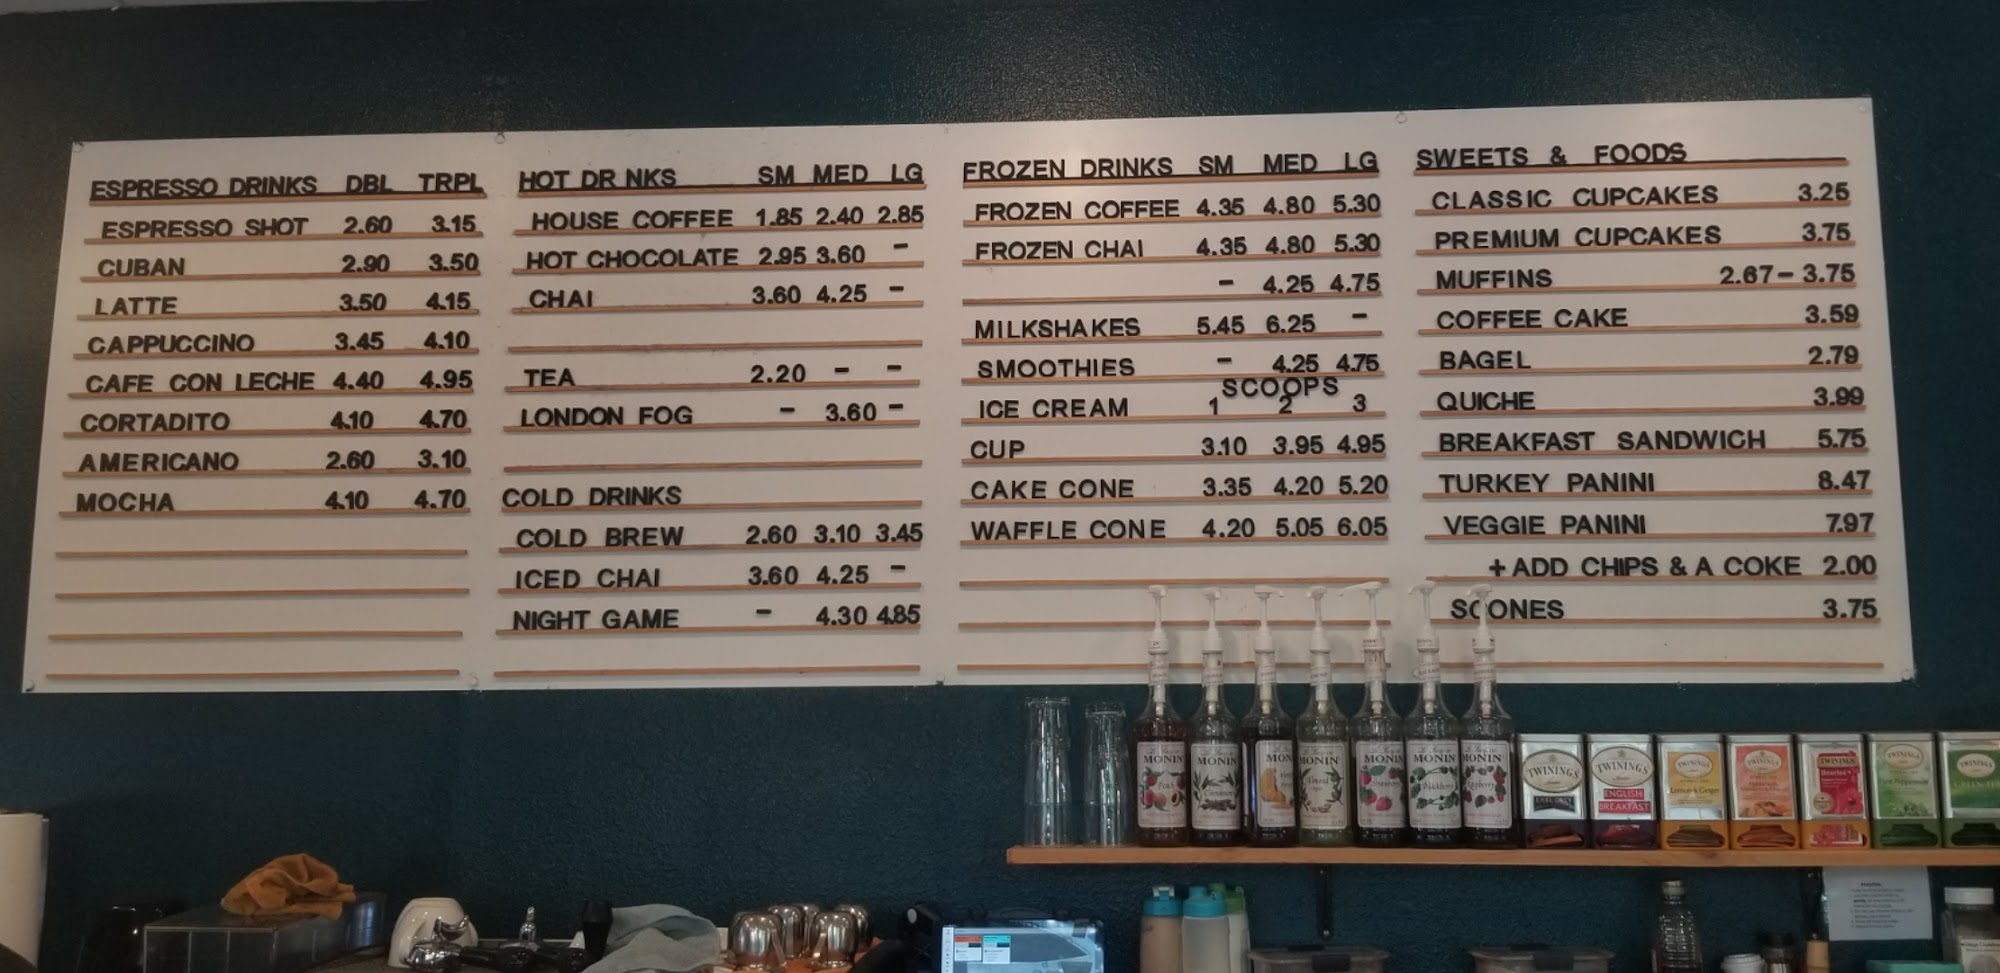 ESPRESSO DRINKS DBL TRPL
ESPRESSO SHOT 2.60 3.15
CUBAN 2.90 3.50
LATTE 3.50 4.15
CAPPUCCINO 3.45 4.10
CAFE CON LECHE 4.40 4.95
CORTADITO 4.10 4.70
AMERICANO 2.60 3.10
MOCHA 4.10 4.70
HOT DR NKS SM MED LG
HOUSE COFFEE 1.85 2.40 2.85
HOT CHOCOLATE 2.95 3.60 -
CHAI 3.60 4.25 -
TEA 2.20 - -
LONDON FOG - 3.60 -
COLD DRINKS
COLD BREW 2.60 3.10 3.45
ICED CHAI 3.60 4.25 -
NIGHT GAME - 4.30 4.85
FROZEN DRINKS SM MED LG
FROZEN COFFEE 4.35 4.80 5.30
FROZEN CHAI 4.35 4.80 5.30
- 4.25 4.75
MILKSHAKES 5.45 6.25 -
SMOOTHIES - 4.25 4.75
SCOOPS
ICE CREAM 1 2 3
CUP 3.10 3.95 4.95
CAKE CONE 3.35 4.20 5.20
WAFFLE CONE 4.20 5.05 6.05
SWEETS & FOODS
CLASSIC CUPCAKES 3.25
PREMIUM CUPCAKES 3.75
MUFFINS 2.67-3.75
COFFEE CAKE 3.59
BAGEL 2.79
QUICHE 3.99
BREAKFAST SANDWICH 5.75
TURKEY PANINI 8.47
VEGGIE PANINI 7.97
+ ADD CHIPS & A COKE 2.00
SCONES 3.75
MONIN
Peach
MONIN
Cinnamon
MONIN
MONIN
Almond
MONIN
Strawberry
MONIN
Blackberry
MONIN
Raspberry
TWININGS
EARL GREY
TWININGS
ENGLISH
BREAKFAST
TWININGS
Lemon & Ginger
TWININGS
TWININGS
TWININGS
TWININGS